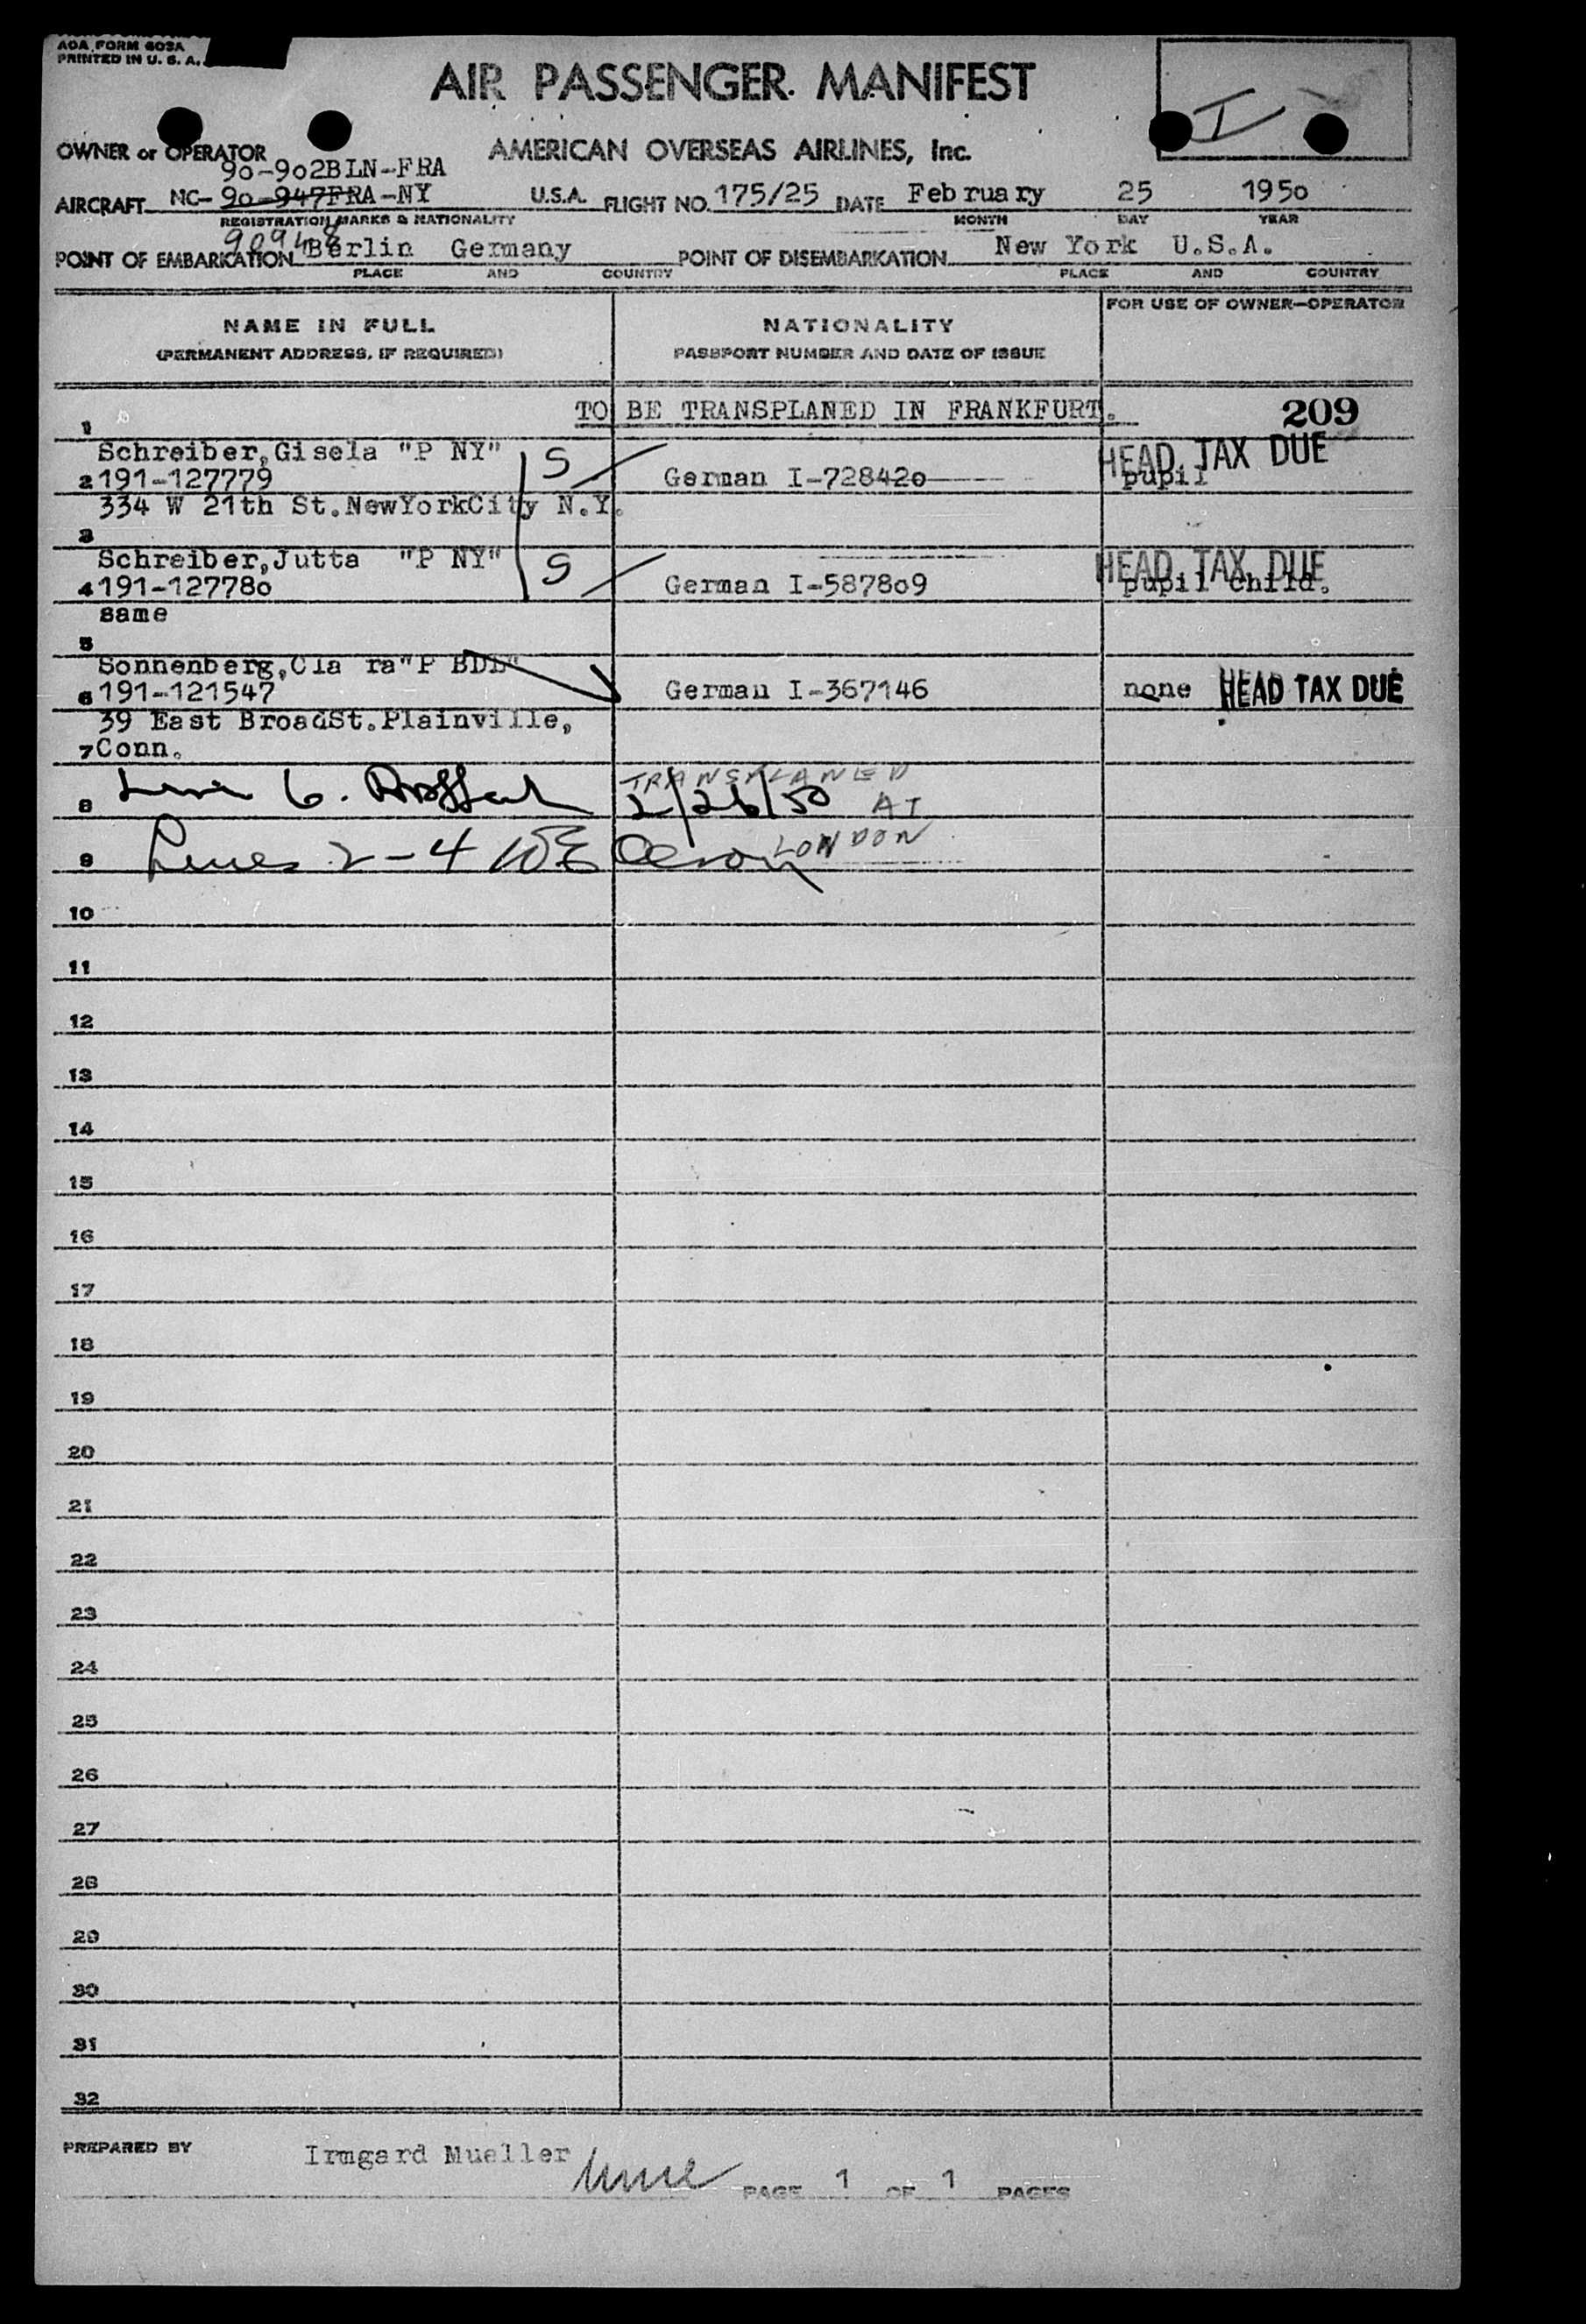 AOA FORM 603A
PRINTED IN U. S. A.
AIR PASSENGER MANIFEST
I
OWNER or OPERATOR AMERICAN OVERSEAS AIRLINES, Inc.
90-902BLN-FRA
AIRCRAFT NC- 90-947FRA-NY U.S.A. FLIGHT NO. 175/25 DATE February 25 1950
REGISTRATION MARKS & NATIONALITY MONTH DAY YEAR
90948
POINT OF EMBARKATION Berlin Germany POINT OF DISEMBARKATION New York U.S.A.
PLACE AND COUNTRY PLACE AND COUNTRY
NAME IN FULL NATIONALITY FOR USE OF OWNER—OPERATOR
(PERMANENT ADDRESS, IF REQUIRED) PASSPORT NUMBER AND DATE OF ISSUE
1 TO BE TRANSPLANED IN FRANKFURT. 209
Schreiber,Gisela "P NY" S HEAD TAX DUE
2 191-127779 German I-728420 pupil
334 W 21th St.NewYorkCity N.Y.
3
Schreiber,Jutta "P NY" S HEAD TAX DUE
4 191-127780 German I-587809 pupil child.
same
5
Sonnenberg,Cla ra"P BDL"
6 191-121547 German I-367146 none HEAD TAX DUE
39 East BroadSt.Plainville,
7 Conn.
TRANSPLANED
8 Line 6. 2/26/50 AT
9 Lines 2-4 WE Olson LONDON
10
11
12
13
14
15
16
17
18
19
20
21
22
23
24
25
26
27
28
29
30
31
32
PREPARED BY Irmgard Mueller
PAGE 1 OF 1 PAGES